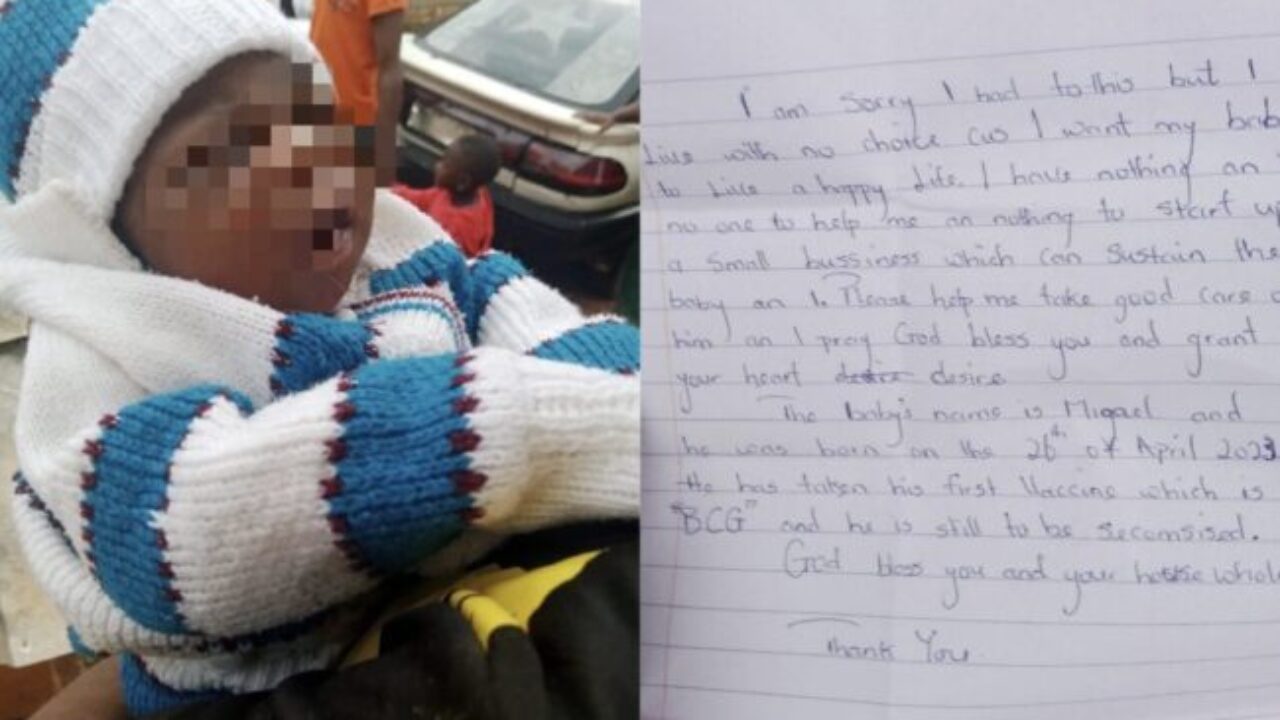 I am Sorry I had to this but I
Live with no choice cus I want my bab
to Live a happy Life. I have nothing an
no one to help me an nothing to start up
a small bussiness which can Sustain the
baby an I. Please help me take good care o
him an I pray God bless you and grant
your heart desire desire
The baby's name is Migael and
he was born on the 26th of April 2023
He has taken his first Vaccine which is
"BCG" and he is still to be secomsised.
God bless you and your house whole
Thank You